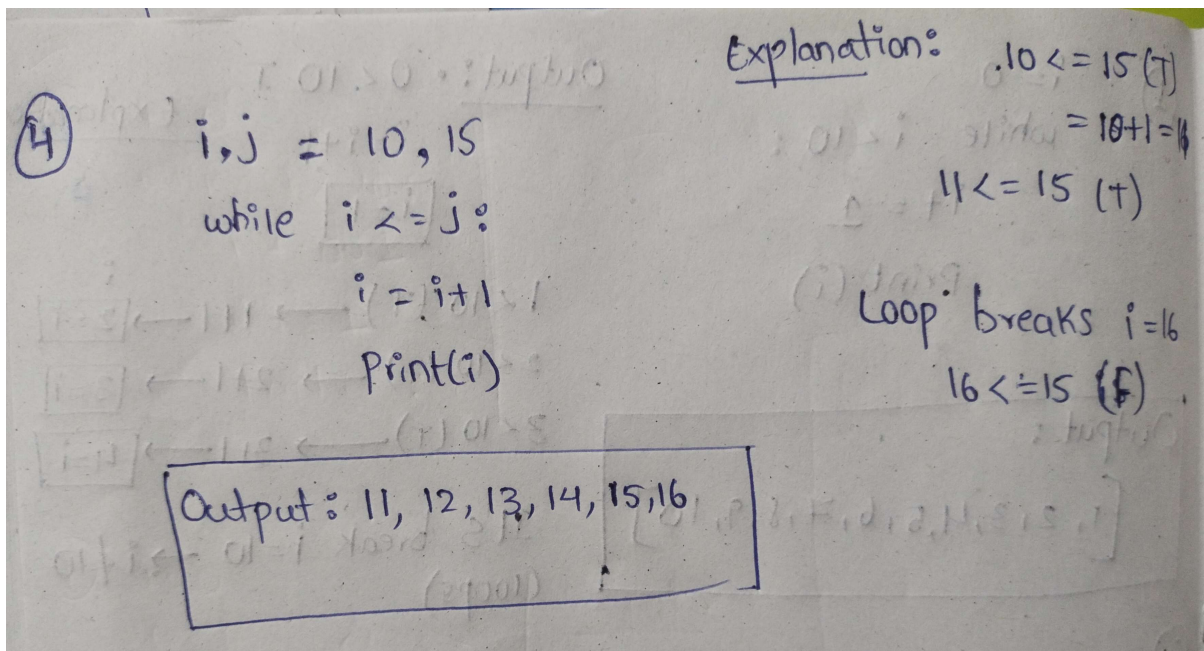 4
i,j = 10, 15
while i <= j:
i = i+1
Print(i)
Output: 11, 12, 13, 14, 15, 16
Explanation: 10 <= 15 (T)
= 10+1 = 11
11 <= 15 (T)
Loop breaks i = 16
16 <= 15 (F)